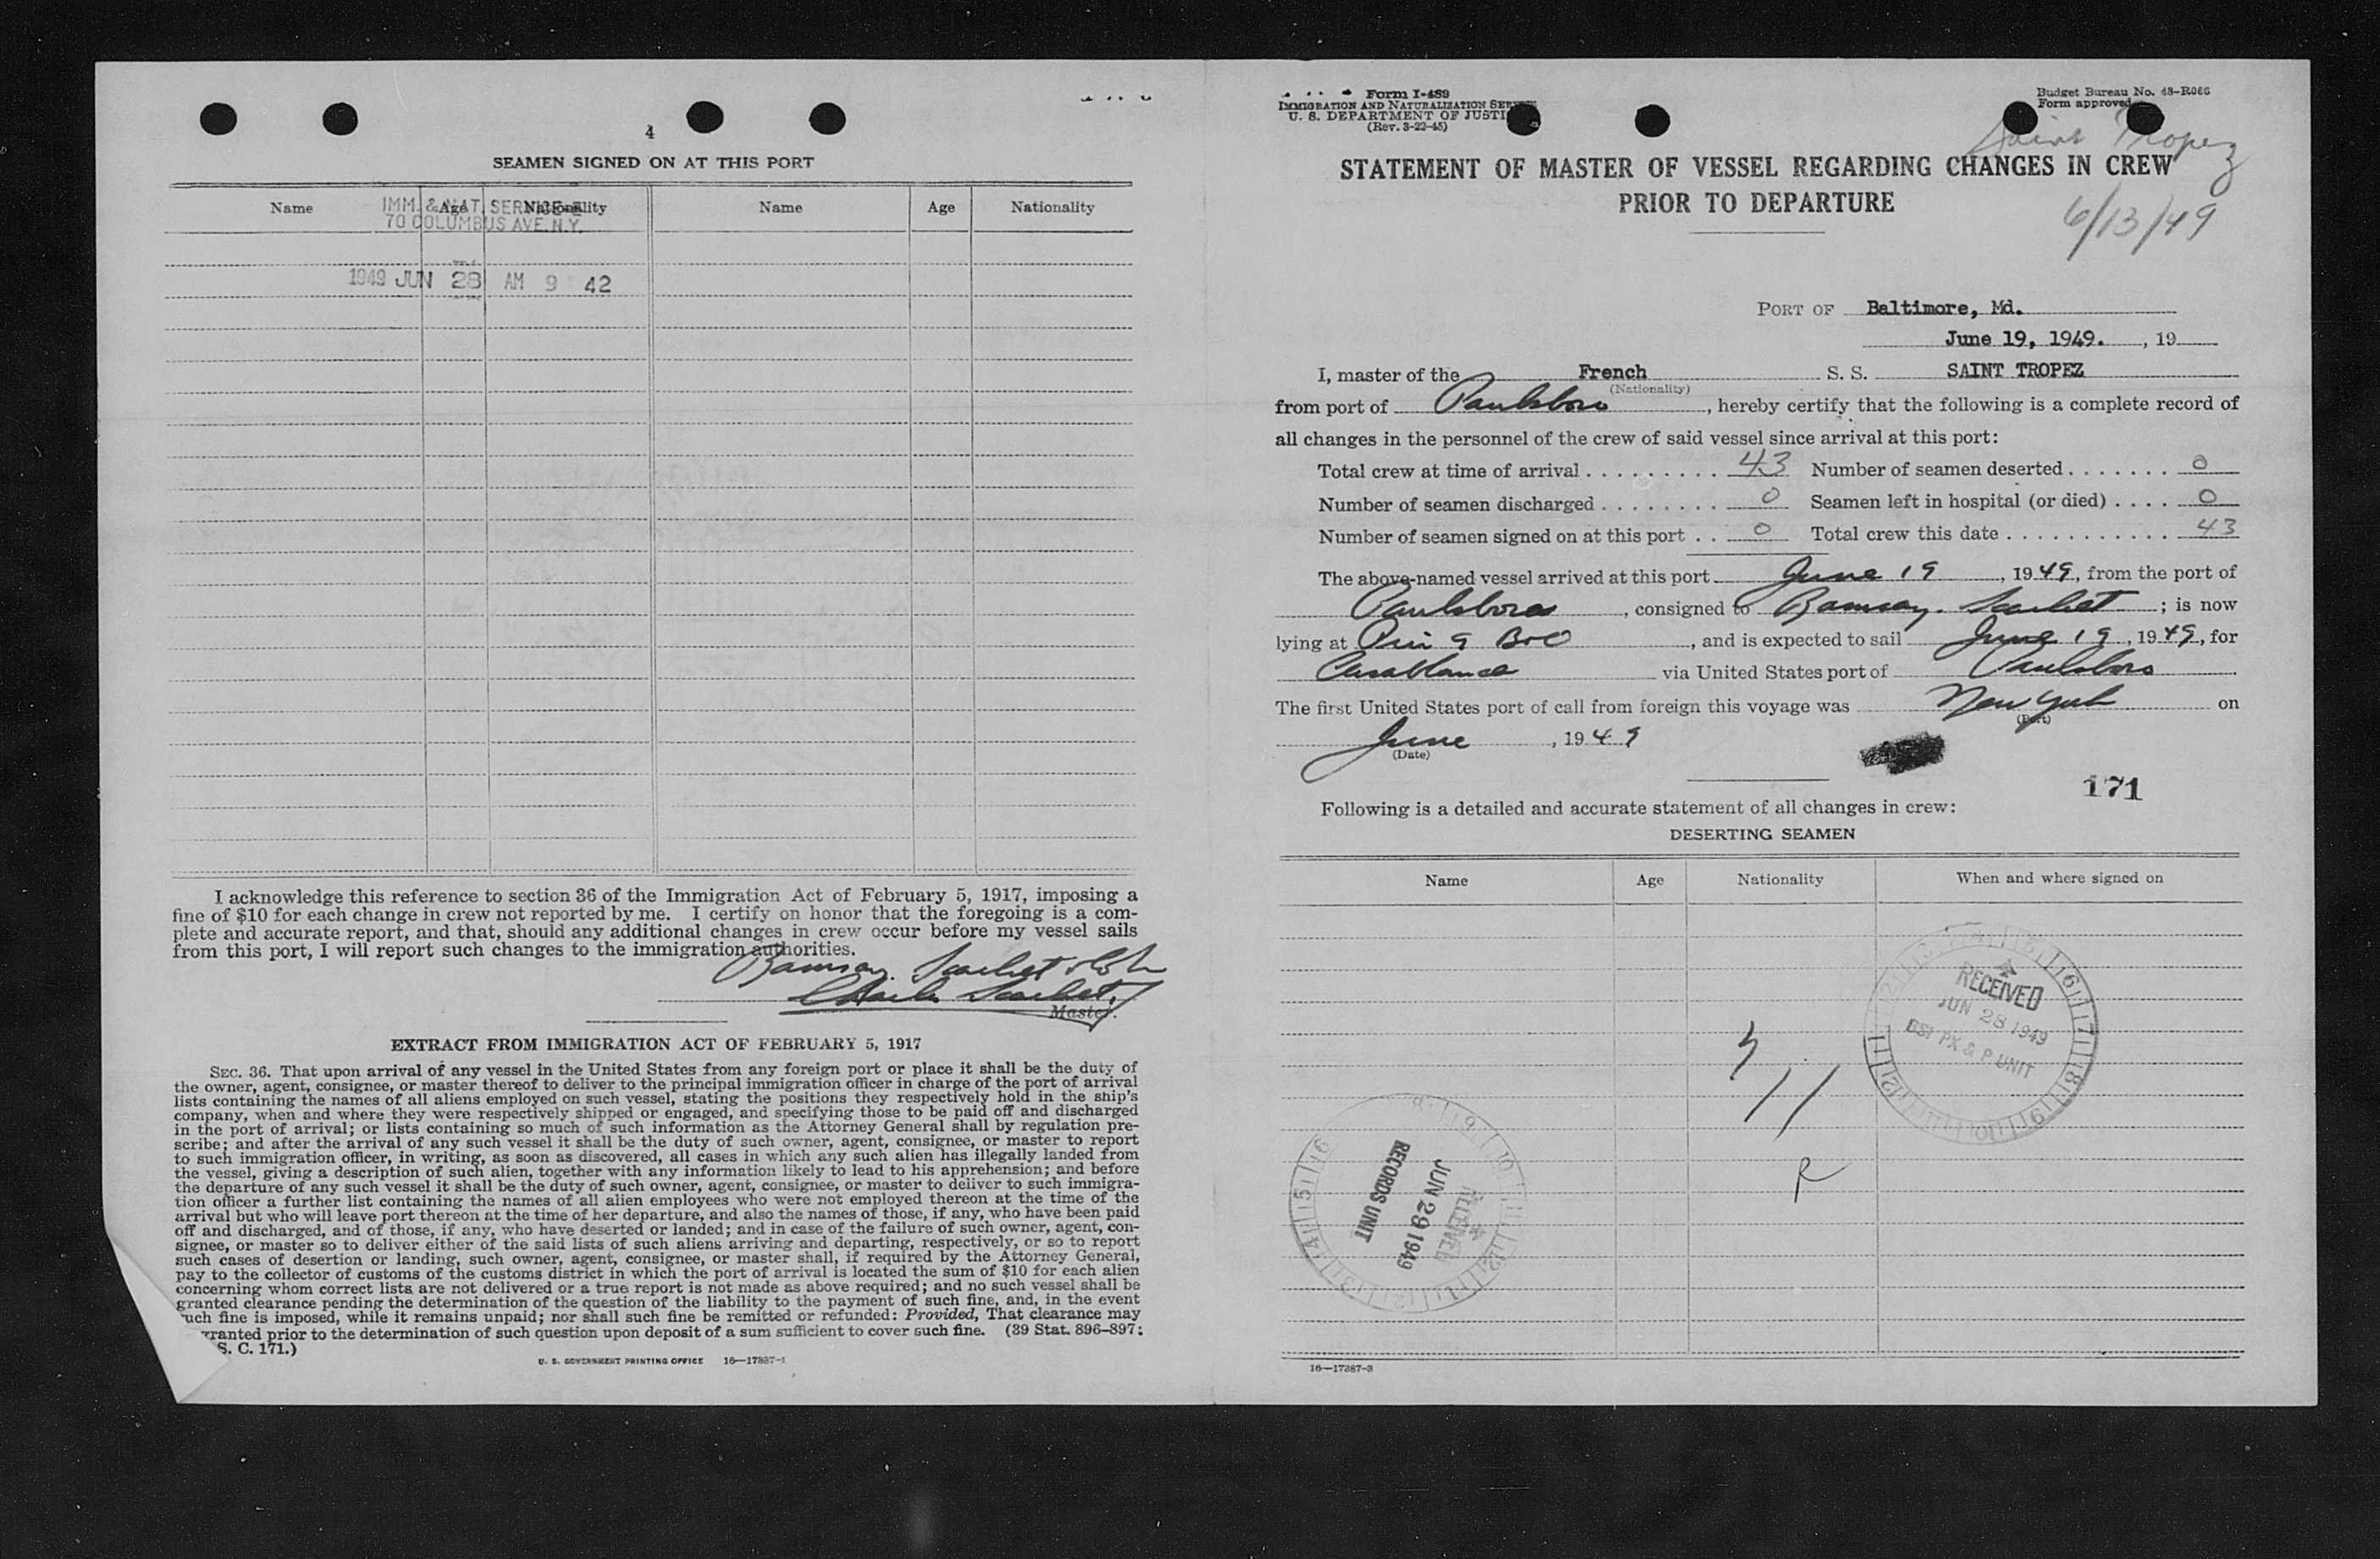 4
SEAMEN SIGNED ON AT THIS PORT
Name Age Nationality Name Age Nationality
IMM. & NAT. SERVICE
70 COLUMBUS AVE. N.Y.
1949 JUN 28 AM 9 42
I acknowledge this reference to section 36 of the Immigration Act of February 5, 1917, imposing a
fine of $10 for each change in crew not reported by me. I certify on honor that the foregoing is a com-
plete and accurate report, and that, should any additional changes in crew occur before my vessel sails
from this port, I will report such changes to the immigration authorities.
Ramsay. Scarlet
Charles Scarlet
Master.
EXTRACT FROM IMMIGRATION ACT OF FEBRUARY 5, 1917
SEC. 36. That upon arrival of any vessel in the United States from any foreign port or place it shall be the duty of
the owner, agent, consignee, or master thereof to deliver to the principal immigration officer in charge of the port of arrival
lists containing the names of all aliens employed on such vessel, stating the positions they respectively hold in the ship's
company, when and where they were respectively shipped or engaged, and specifying those to be paid off and discharged
in the port of arrival; or lists containing so much of such information as the Attorney General shall by regulation pre-
scribe; and after the arrival of any such vessel it shall be the duty of such owner, agent, consignee, or master to report
to such immigration officer, in writing, as soon as discovered, all cases in which any such alien has illegally landed from
the vessel, giving a description of such alien, together with any information likely to lead to his apprehension; and before
the departure of any such vessel it shall be the duty of such owner, agent, consignee, or master to deliver to such immigra-
tion officer a further list containing the names of all alien employees who were not employed thereon at the time of the
arrival but who will leave port thereon at the time of her departure, and also the names of those, if any, who have been paid
off and discharged, and of those, if any, who have deserted or landed; and in case of the failure of such owner, agent, con-
signee, or master so to deliver either of the said lists of such aliens arriving and departing, respectively, or so to report
such cases of desertion or landing, such owner, agent, consignee, or master shall, if required by the Attorney General,
pay to the collector of customs of the customs district in which the port of arrival is located the sum of $10 for each alien
concerning whom correct lists are not delivered or a true report is not made as above required; and no such vessel shall be
granted clearance pending the determination of the question of the liability to the payment of such fine, and, in the event
such fine is imposed, while it remains unpaid; nor shall such fine be remitted or refunded: Provided, That clearance may
granted prior to the determination of such question upon deposit of a sum sufficient to cover such fine. (39 Stat. 896–897;
S. C. 171.)
U. S. GOVERNMENT PRINTING OFFICE 16—17387-1
Form I-489
IMMIGRATION AND NATURALIZATION SERVICE
U. S. DEPARTMENT OF JUSTICE
(Rev. 3-22-45)
Budget Bureau No. 43-R066
Form approved
Saint Tropez
STATEMENT OF MASTER OF VESSEL REGARDING CHANGES IN CREW
PRIOR TO DEPARTURE
6/13/49
PORT OF Baltimore, Md.
June 19, 1949. , 19
I, master of the French S. S. SAINT TROPEZ
(Nationality)
from port of Paulsboro , hereby certify that the following is a complete record of
all changes in the personnel of the crew of said vessel since arrival at this port:
Total crew at time of arrival . . . . . . . . . 43 Number of seamen deserted . . . . . . . 0
Number of seamen discharged . . . . . . . . 0 Seamen left in hospital (or died) . . . . 0
Number of seamen signed on at this port . . 0 Total crew this date . . . . . . . . . . . 43
The above-named vessel arrived at this port June 19 , 1949, from the port of
Paulsboro , consigned to Ramsay. Scarlet ; is now
lying at Pier 9 B&O , and is expected to sail June 19 , 1949, for
Casablanca via United States port of Paulsboro
The first United States port of call from foreign this voyage was New York on
(Port)
June , 1949
(Date)
171
Following is a detailed and accurate statement of all changes in crew:
DESERTING SEAMEN
Name Age Nationality When and where signed on
RECEIVED
JUN 28 1949
PX & P UNIT
RECEIVED
JUN 29 1949
RECORDS UNIT
R
16—17387-3